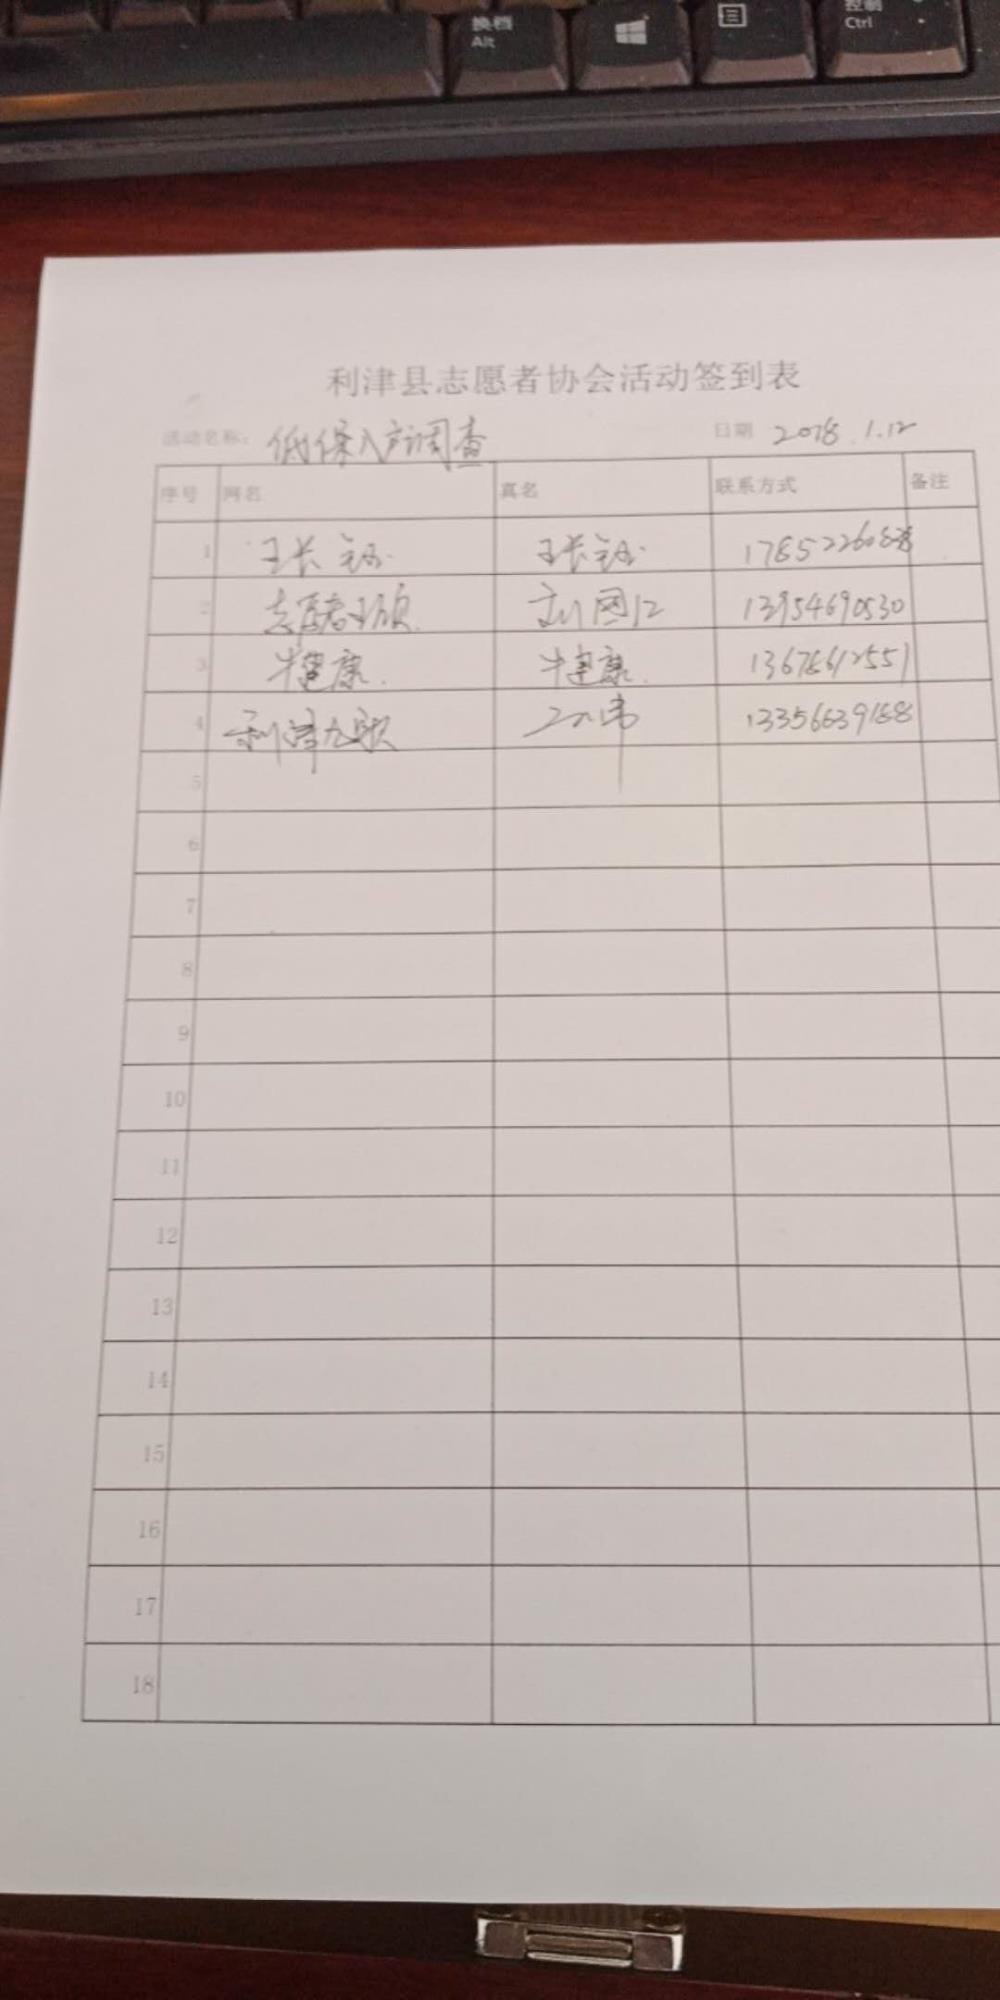 换档
Alt
控制
Ctrl
利津县志愿者协会活动签到表
活动名称: 低保入户调查 日期 2018.1.12
序号 网名 真名 联系方式 备注
1 王长钰 王长钰
2 志愿者 13954690530
3 牛健康 牛健康 13678612551
4 利津 13356639168
5
6
7
8
9
10
11
12
13
14
15
16
17
18